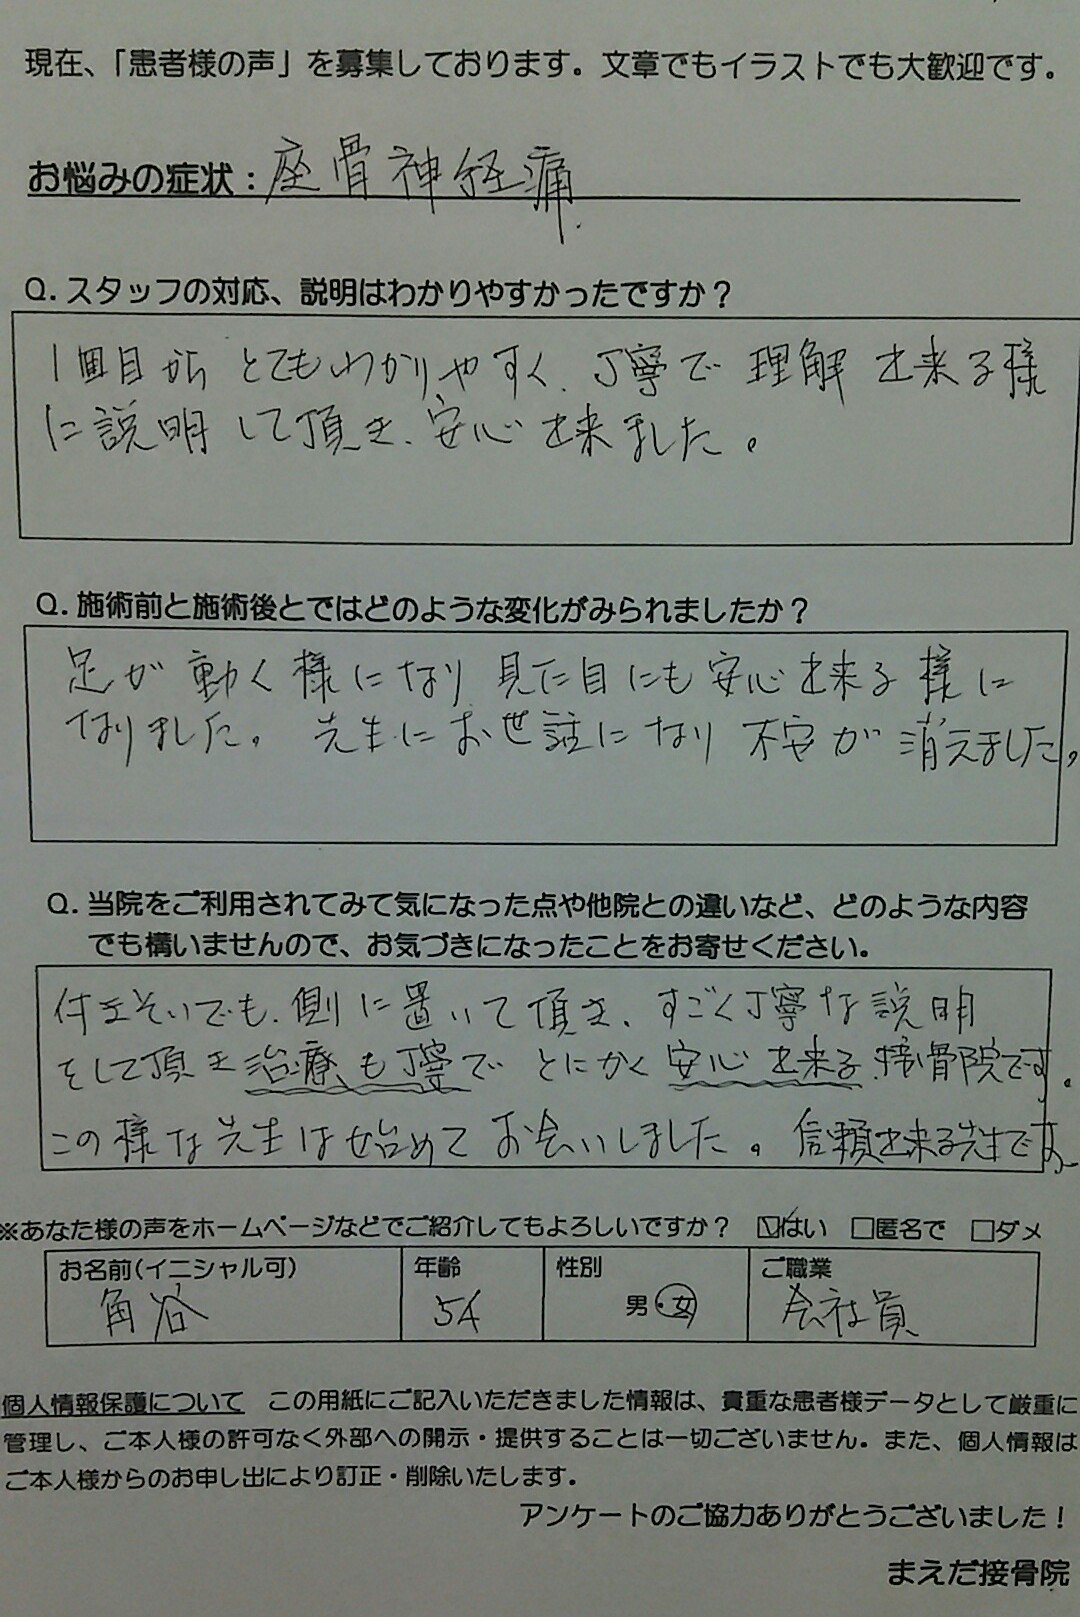 現在、「患者様の声」を募集しております。文章でもイラストでも大歓迎です。
お悩みの症状：座骨神経痛
Q.スタッフの対応、説明はわかりやすかったですか？
1回目から とてもわかりやすく、丁寧で 理解 出来る様
に説明して頂き、安心出来ました。
Q.施術前と施術後とではどのような変化がみられましたか？
足が動く様になり 見た目にも安心出来る様に
なりました。 先生にお世話になり 不安が消えました。
Q.当院をご利用されてみて気になった点や他院との違いなど、どのような内容
でも構いませんので、お気づきになったことをお寄せください。
付きそいでも、側に置いて頂き、すごく丁寧な説明
をして頂き治療も丁寧で とにかく 安心出来る接骨院です。
この様な先生は始めて お会いしました。信頼出来る先生です。
※あなた様の声をホームページなどでご紹介してもよろしいですか？ ☑はい □匿名で □ダメ
お名前(イニシャル可) 年齢 性別 ご職業
角谷 54 男・女 会社員
個人情報保護について この用紙にご記入いただきました情報は、貴重な患者様データとして厳重に
管理し、ご本人様の許可なく外部への開示・提供することは一切ございません。また、個人情報は
ご本人様からのお申し出により訂正・削除いたします。
アンケートのご協力ありがとうございました！
まえだ接骨院